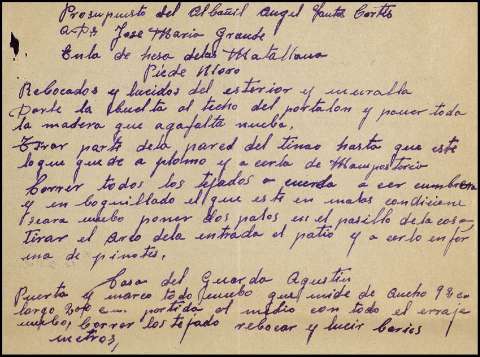 Prosupuesto del Albañil Angel Santos Cortés
a D Jose Maria Grande
En la de hesa delas Matallana
Piede Moro
Rebocados y lucidos del esterior y muralla
Darle la buelta al techo del portalon y poner toda
la madera que aga falta nueba.
Tirar parte dela pared del tinao hasta que este
loque quede a plomo y a cerla de Mamposteria
Correr todos los tejados a cuerda a cer cumbrera
y en boquillado el que este en malas condiciene
seara nuebo poner dos palos en el pasillo de la casa
tirar el arco dela entrada el patio y a cerlo en for
ma de pinotes.
Casa del Guarda Agustin
Puerta y marco todo nuebo que mide de ancho 98 cm
largo 2 cm partida al medio con todo el erraje
nuebo, Correr los tejado rebocar y lucir barios
metros,